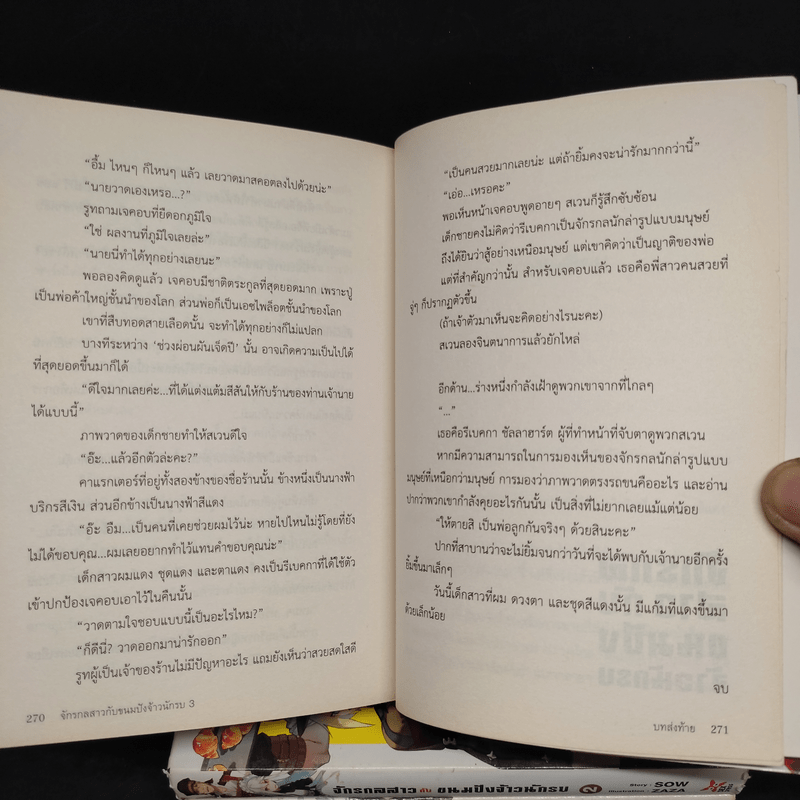 “อื้ม ไหนๆ ก็ไหนๆ แล้ว เลยวาดมาสคอตลงไปด้วยน่ะ”
“นายวาดเองเหรอ...?”
รูทถามเจคอบที่ยืดอกภูมิใจ
“ใช่ ผลงานที่ภูมิใจเลยล่ะ”
“นายนี่ทำได้ทุกอย่างเลยนะ”
พอลองคิดดูแล้ว เจคอบมีชาติตระกูลที่สุดยอดมาก เพราะปู่
เป็นพ่อค้าใหญ่ชั้นนำของโลก ส่วนพ่อก็เป็นเอซไพล็อตชั้นนำของโลก
เขาที่สืบทอดสายเลือดนั้น จะทำได้ทุกอย่างก็ไม่แปลก
บางทีระหว่าง ‘ช่วงผ่อนผันเจ็ดปี’ นั้น อาจเกิดความเป็นไปได้
ที่สุดยอดขึ้นมาก็ได้
“ดีใจมากเลยค่ะ...ที่ได้แต่งแต้มสีสันให้กับร้านของท่านเจ้านาย
ได้แบบนี้”
ภาพวาดของเด็กชายทำให้สเวนดีใจ
“อ๊ะ...แล้วอีกตัวล่ะคะ?”
คาแรกเตอร์ที่อยู่ทั้งสองข้างของชื่อร้านนั้น ข้างหนึ่งเป็นนางฟ้า
บริกรสีเงิน ส่วนอีกข้างเป็นนางฟ้าสีแดง
“อ๊ะ อืม...เป็นคนที่เคยช่วยผมไว้น่ะ หายไปไหนไม่รู้โดยที่ยัง
ไม่ได้ขอบคุณ...ผมเลยอยากทำไว้แทนคำขอบคุณน่ะ”
เด็กสาวผมแดง ชุดแดง และตาแดง คงเป็นรีเบคกาที่ได้ใช้ตัว
เข้าปกป้องเจคอบเอาไว้ในคืนนั้น
“วาดตามใจชอบแบบนี้เป็นอะไรไหม?”
“ก็ดีนี่? วาดออกมาน่ารักออก”
รูทผู้เป็นเจ้าของร้านไม่มีปัญหาอะไร แถมยังเห็นว่าสวยสดใสดี
270 จักรกลสาวกับขนมปังจ้าวนักรบ 3
“เป็นคนสวยมากเลยน่ะ แต่ถ้ายิ้มคงจะน่ารักมากกว่านี้”
“เอ่อ...เหรอคะ”
พอเห็นหน้าเจคอบพูดอายๆ สเวนก็รู้สึกซับซ้อน
เด็กชายคงไม่คิดว่ารีเบคกาเป็นจักรกลนักล่ารูปแบบมนุษย์
ถึงได้ยินว่าสู้อย่างเหนือมนุษย์ แต่เขาคิดว่าเป็นญาติของพ่อ
แต่ที่สำคัญกว่านั้น สำหรับเจคอบแล้ว เธอคือพี่สาวคนสวยที่
จู่ๆ ก็ปรากฏตัวขึ้น
(ถ้าเจ้าตัวมาเห็นจะคิดอย่างไรนะคะ)
สเวนลองจินตนาการแล้วยักไหล่
อีกด้าน...ร่างหนึ่งกำลังเฝ้าดูพวกเขาจากที่ไกลๆ
“...”
เธอคือรีเบคกา ชัลลาฮาร์ต ผู้ที่ทำหน้าที่จับตาดูพวกสเวน
หากมีความสามารถในการมองเห็นของจักรกลนักล่ารูปแบบ
มนุษย์ที่เหนือกว่ามนุษย์ การมองว่าภาพวาดตรงรถขนคืออะไร และอ่าน
ปากว่าพวกเขากำลังคุยอะไรกันนั้น เป็นสิ่งที่ไม่ยากเลยแม้แต่น้อย
“ให้ตายสิ เป็นพ่อลูกกันจริงๆ ด้วยสินะคะ”
ปากที่สาบานว่าจะไม่ยิ้มจนกว่าวันที่จะได้พบกับเจ้านายอีกครั้ง
ยิ้มขึ้นมาเล็กๆ
วันนี้เด็กสาวที่ผม ดวงตา และชุดสีแดงนั้น มีแก้มที่แดงขึ้นมา
ด้วยเล็กน้อย
จบ
บทส่งท้าย 271
จักรกลสาว กับ ขนมปังจ้าวนักรบ
Story : SOW
Illustration : ZAZA